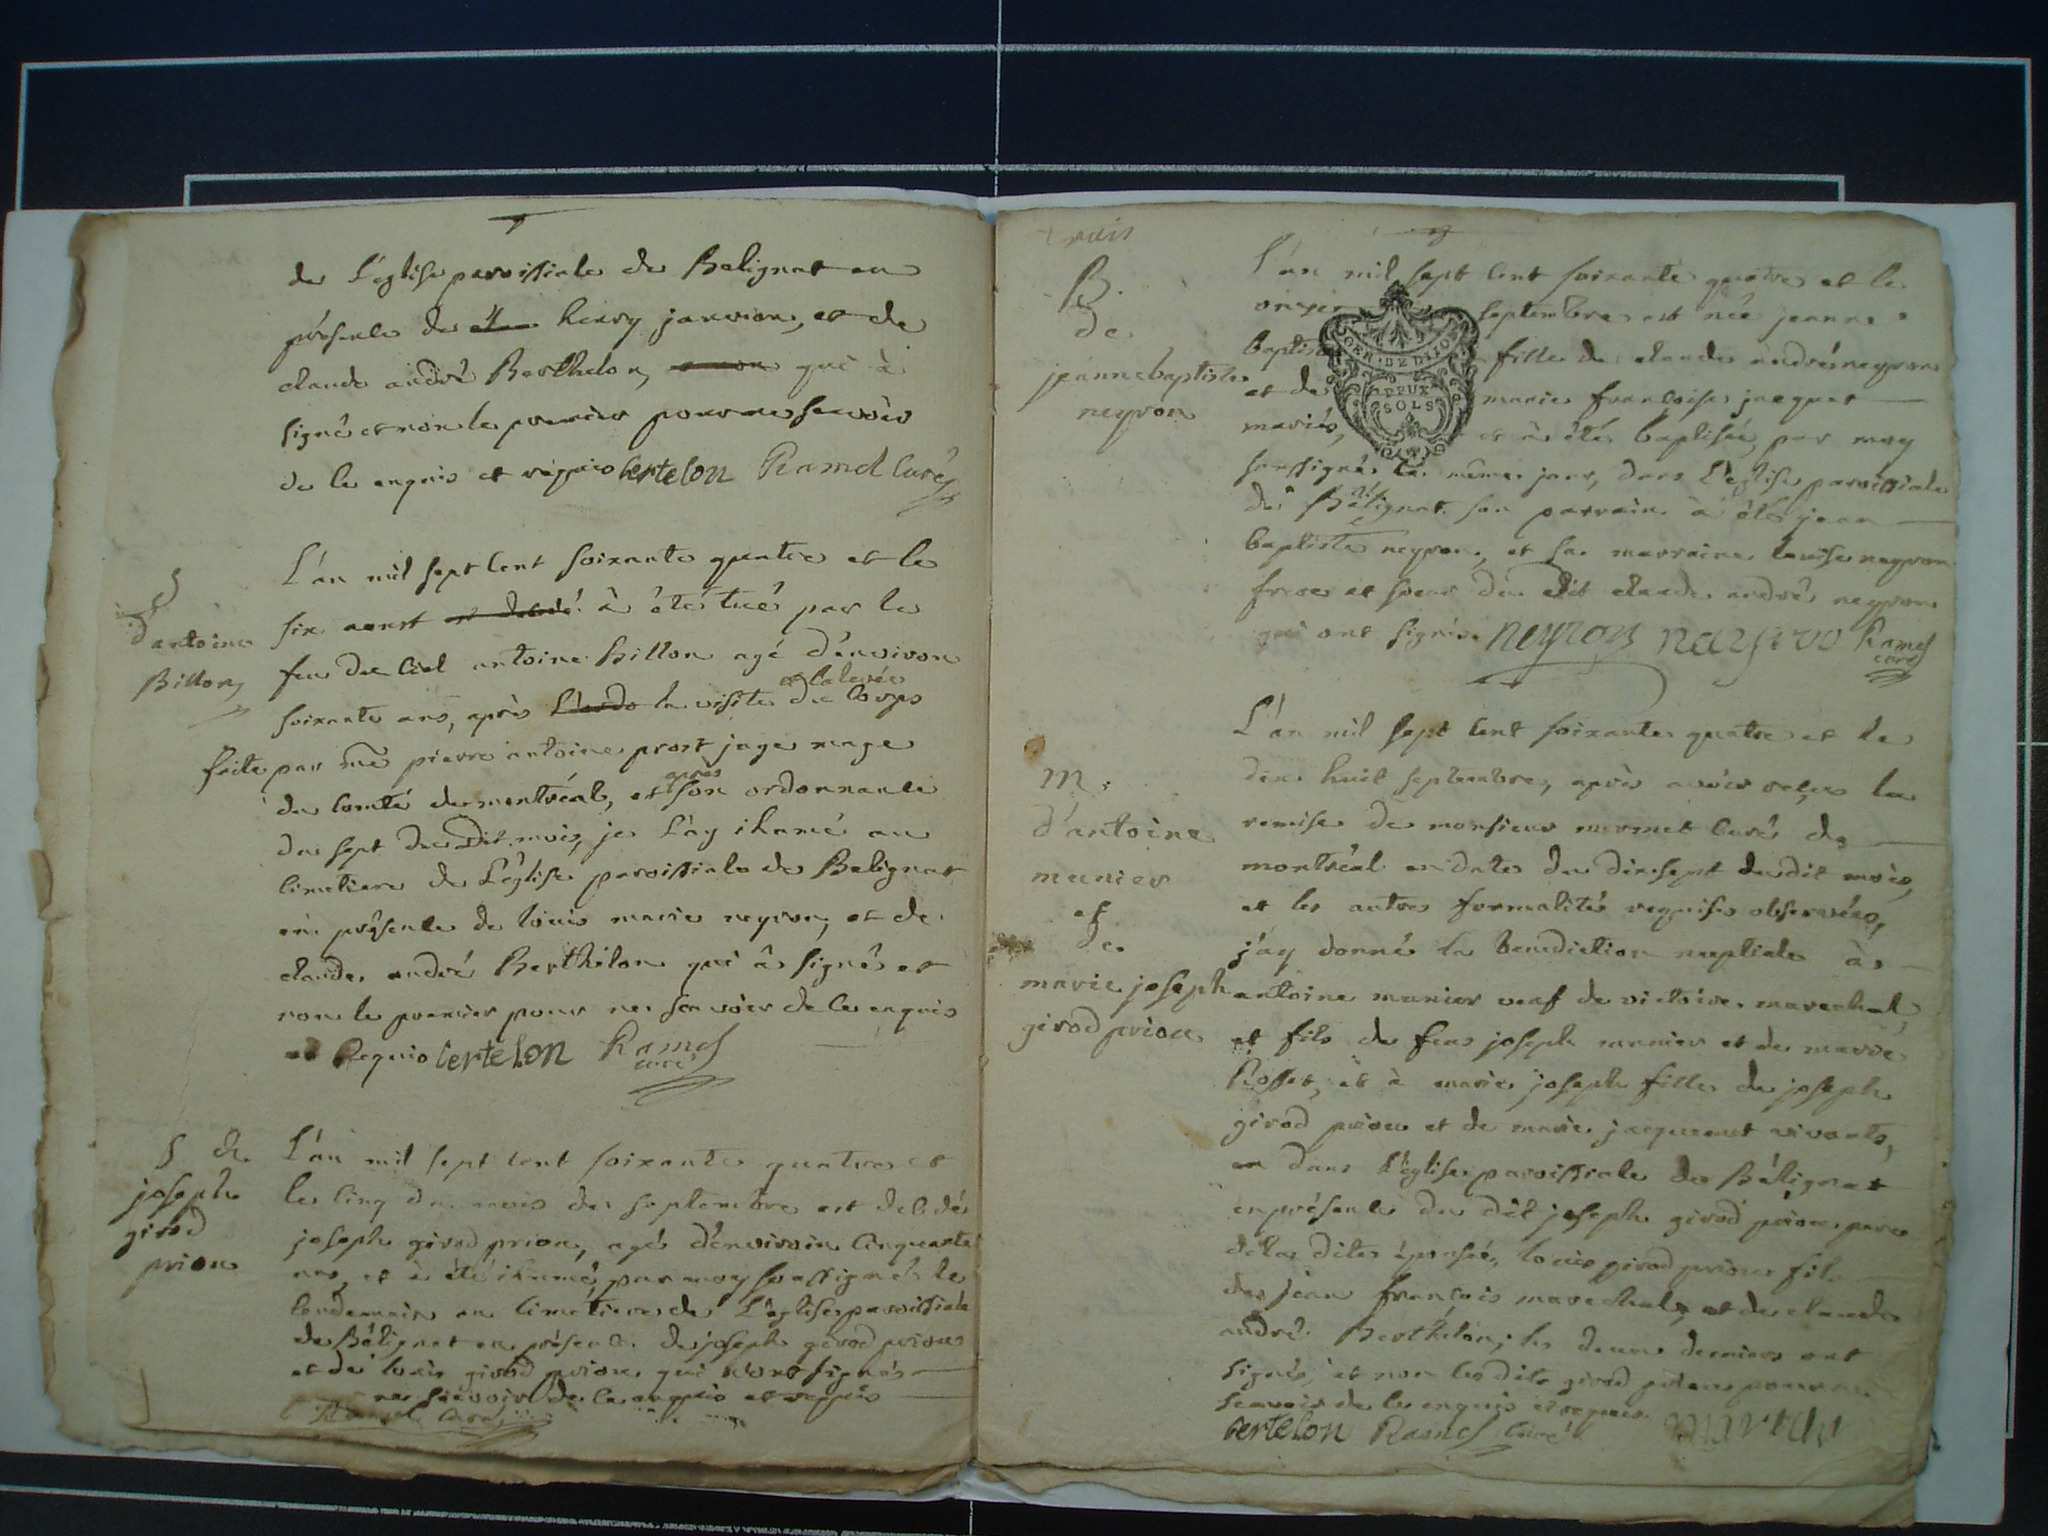 de L'église paroissiale de Belignat en
présence de henry janvion, et de
claude andré Berthelon, qui à
signé et non le premier pour ne scavoir
de ce enquis et requis bertelon Ramel Curé
S
d'antoine
Billon
L'an mil sept cent soixante quatre et le
six aoust à été tué par le
feu du Ciel antoine billon agé d'environ
soixante ans, après la visite et la levée du Corps
faite par me pierre antoine prost juge mage
du Comté de montréal, et après son ordonnance
du sept du Dit mois, je L'ay ihumé au
Cimetiere de L'église paroissiale de Belignat
en présence de louis marie neyron, et de
claude andré Berthelon qui à signé et
non le premier pour ne scavoir de ce enquis
et Requis bertelon Ramel
curé
S de
joseph
girod
prion
L'an mil sept cent soixante quatre et
le cinq du mois de septembre est décédé
joseph girod prion, agé d'environ Cinquante
ans, et à été ihumé, par moy soussigné le
lendemain au Cimetiere de L'église paroissiale
de Bélignat en présence de joseph girod prion
et de louis girod prion qui n'ont signés
ne scavoir de ce enquis et requis
Ramel Curé
trois
B.
de
jeanne baptiste
neyron
L'an mil sept cent soixante quatre et le
onzie septembre est née jeanne
baptiste fille de claude andré neyron
et de marie françoise jacquet
mariés, et à été baptisée, par moy
soussigné le même jour, dans L'église paroissiale
de Bélignat. son parrain à été jean
baptiste neyron, et sa marraine louise neyron
frere et soeur du dit claude andré neyron
qui ont signés. neyron Ramel
curé
GEN. DE DIJON
DEUX
SOLS
M.
d'antoine
munier
et
de
marie joseph
girod prion
L'an mil sept cent soixante quatre et le
dix huit septembre, après avoir reçus la
remise de monsieur mermet Curé de
montréal en date du dix sept du dit mois,
et les autres formalités requises observées,
j'ay donné la benediction nuptiale à
antoine munier veuf de victoire marechal,
et fils de feus joseph munier et de marie
Rosset, et à marie joseph fille de joseph
girod prion et de marie jacquemet vivants,
dans L'église paroissiale de Bélignat
en présence du dit joseph girod prion pere
de la dite épousée, louis girod prion fils
de jean françois marechal, et de claude
andré Berthelon; les deux derniers ont
signés, et non les dits girod prion pour ne
scavoir de ce enquis et requis.
bertelon Ramel Curé